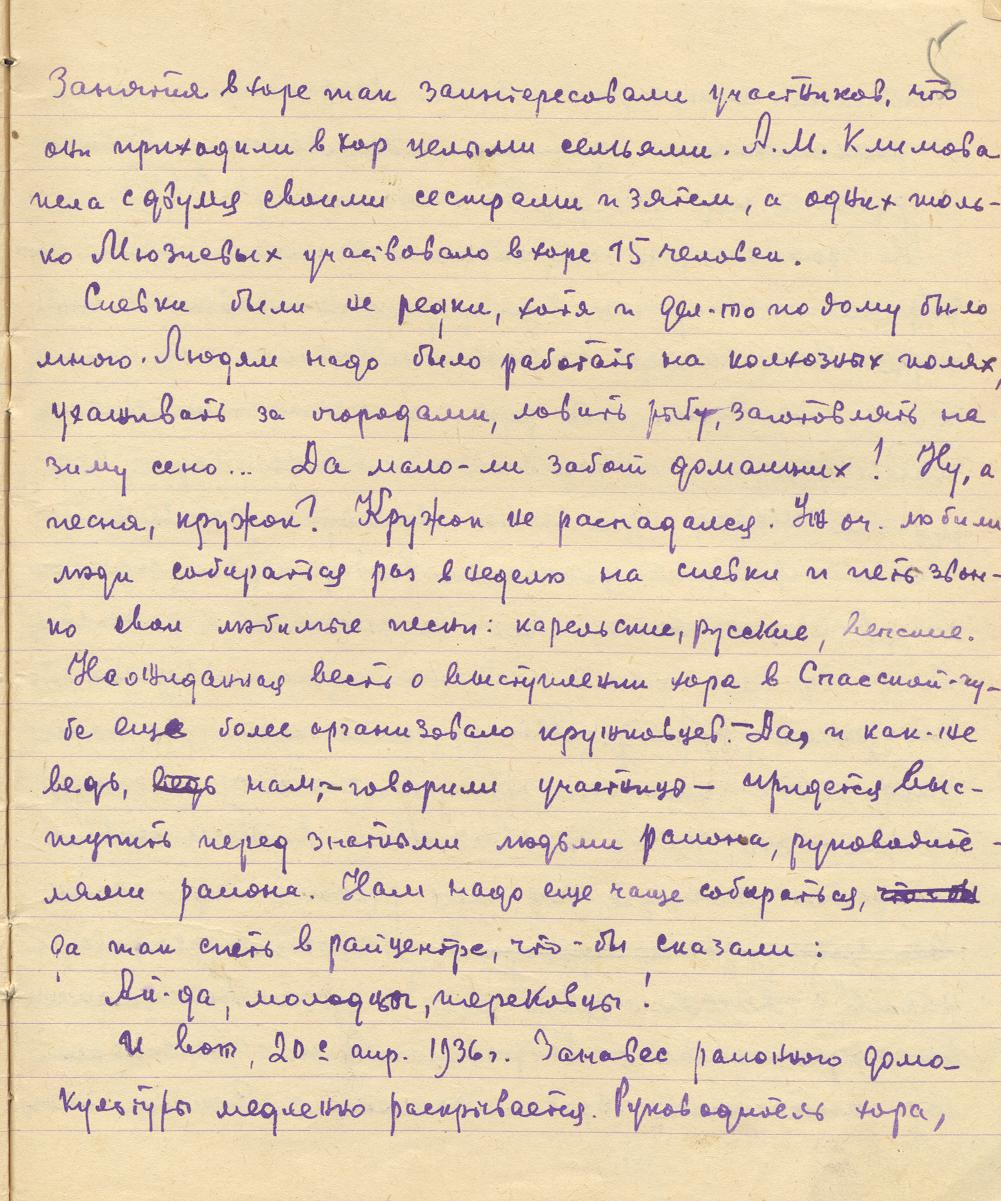 Занятия в хоре так заинтересовали участников, что
они приходили в хор целыми семьями. А.М. Климова
пела с двумя своими сестрами и зятем, а одних толь-
ко Мюзиевых участвовало в хоре 15 человек.
Спевки были не редки, хотя и дел-то по дому было
много. Людям надо было работать на колхозных полях,
ухаживать за огородами, ловить рыбу, заготовлять на
зиму сено... Да мало-ли забот домашних! Ну, а
песня, кружок? Кружок не распадался. Уж оч. любили
люди собираться раз в неделю на спевки и петь звон-
ко свои любимые песни: карельские, русские, вепские.
Неожиданная весть о выступлении хора в Спасской-гу-
бе еще более организовало кружковцев. – Да, и как-же
ведь, ведь нам, – говорили участницы – придется выс-
тупить перед знатными людьми района, руководите-
лями района. Нам надо еще чаще собираться, что-бы
да так спеть в райцентре, что-бы сказали:
Ай-да, молодцы, перековцы!
И вот, 20е апр. 1936 г. Занавес районного дома
культуры медленно раскрывается. Руководитель хора,